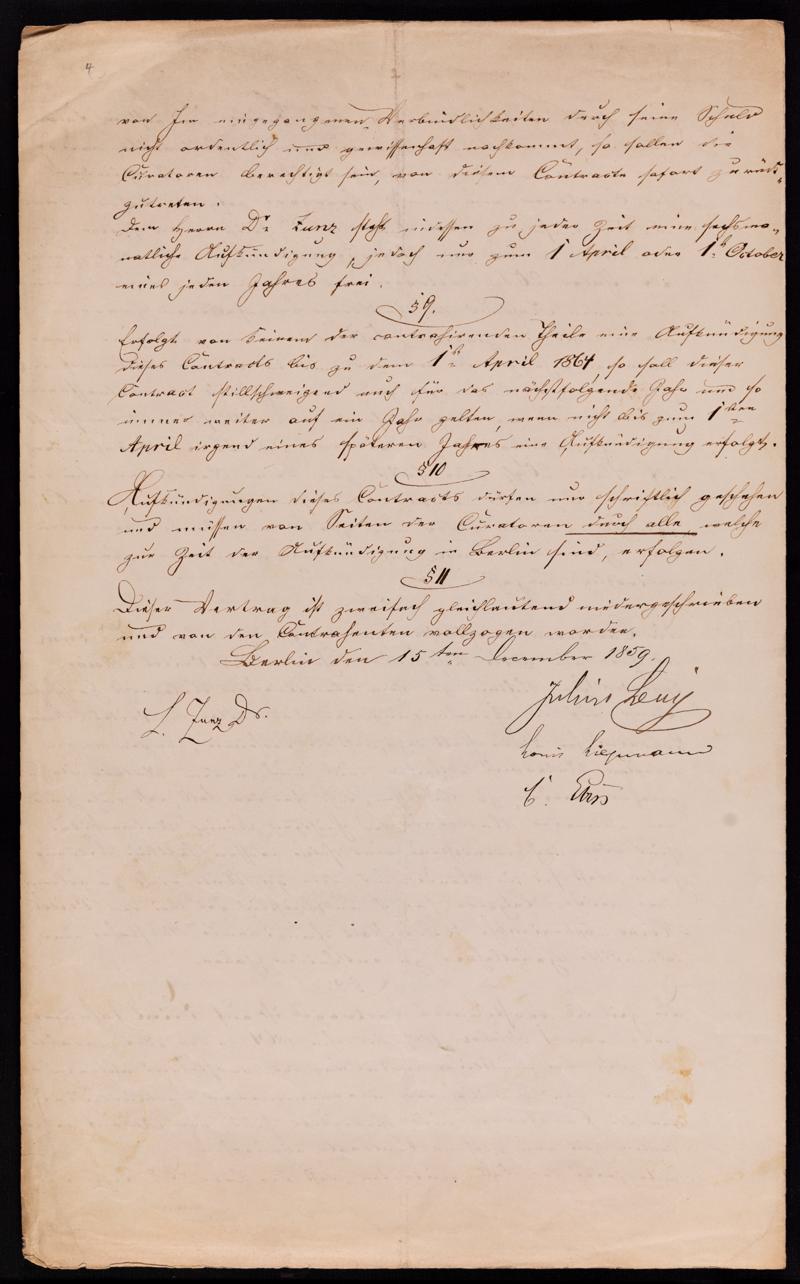 4
von ihm eingegangenen Verbindlichkeiten durch seine Schuld
nicht ordentlich und gewissenhaft nachkommt, so sollen die
Curatoren berechtigt sein, von diesem Contracte sofort zurück-
zutreten.
Dem Herrn Dr Zunz steht indessen zu jeder Zeit eine sechsmo-
natliche Aufkündigung, jedoch nur zum 1 April oder 1t October
eines jeden Jahres frei.
§ 9.
Erfolgt von Seinem der contrahirenden Theile eine Aufkündigung
dieses Contracts bis zu dem 1ten April 1864, so soll dieser
Contract stillschweigend auch für das nächstfolgende Jahr und so
immer weiter auf ein Jahr gelten, wenn nicht bis zum 1sten
April irgend eines späteren Jahres eine Aufkündigung erfolgt.
§ 10
Aufkündigungen dieses Contracts dürfen nur schriftlich geschehen
und müssen von Seiten der Curatoren durch alle, welche
zur Zeit der Aufkündigung in Berlin sind, erfolgen.
§ 11
Dieser Vertrag ist zweifach gleichlautend niedergeschrieben
und von den Contrahenten vollzogen worden.
Berlin den 15ten December 1859.
L. Zunz Dr.
Julius Levy
Louis Liepmann